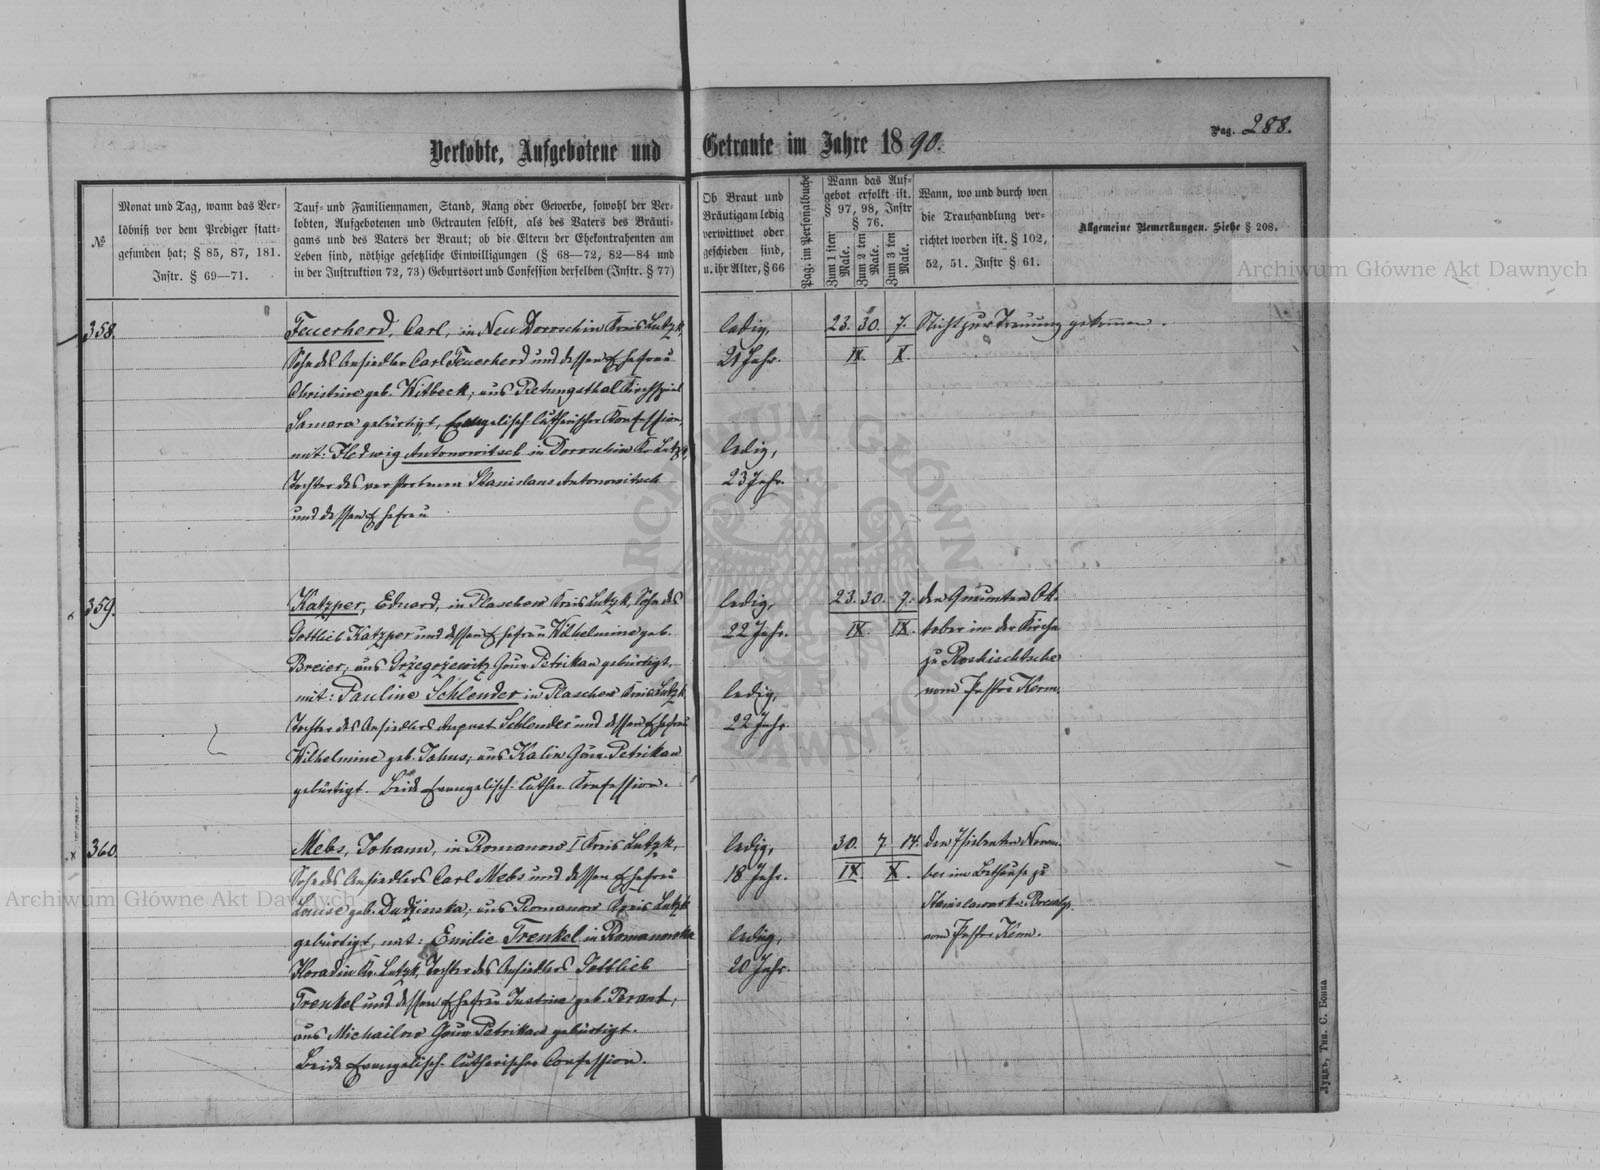 Verlobte, Aufgebotene und Getraute im Jahre 1890.
Pag. 288.
№
Monat und Tag, wann das Ver-
löbniß vor dem Prediger statt-
gefunden hat; § 85, 87, 181.
Instr. § 69—71.
Tauf- und Familiennamen, Stand, Rang oder Gewerbe, sowohl der Ver-
lobten, Aufgebotenen und Getrauten selbst, als des Vaters des Bräuti-
gams und des Vaters der Braut; ob die Eltern der Ehekontrahenten am
Leben sind, nöthige gesetzliche Einwilligungen (§ 68—72, 82—84 und
in der Instruktion 72, 73) Geburtsort und Confession derselben (Instr. § 77)
Ob Braut und
Bräutigam ledig
verwittwet oder
geschieden sind,
u. ihr Alter, § 66
Pag. im Personalbuche
Wann das Auf-
gebot erfolkt ist.
§ 97, 98, Instr
§ 76.
Zum 1 sten Male.
Zum 2 ten Male.
Zum 3 ten Male.
Wann, wo und durch wen
die Trauhandlung ver-
richtet worden ist. § 102,
52, 51. Instr § 61.
Allgemeine Bemerkungen. Siehe § 208.
358.
Feuerherd, Carl, in Neu Doroschin Kreis Lutzk,
Sohn des Ansiedler Carl Feuerherd und dessen Ehefrau
Christine geb. Witbeck, aus Kirchspiel
Samara gebürtigt, Evangelisch-lutherischer Konfession,
mit: Hedwig Antonowitsch in Doroschin Kr. Lutzk,
Tochter des verstorbenen Stanislaus Antonowitsch
und dessen Ehefrau
ledig,
21 Jahr.
ledig,
23 Jahr.
23. 30. 7.
IX. X.
Nicht zur Trauung gekommen.
359.
Katzper, Eduard, in Plaschew Kreis Lutzk, Sohn des
Gottlieb Katzper und dessen Ehefrau Wilhelmine geb.
Breier, aus Grżegożewitz Gouv. Petrikau gebürtigt,
mit: Pauline Schlender in Plaschew Kreis Lutzk
Tochter des Ansiedlers August Schlender und dessen Ehefrau
Wilhelmine geb. Jahns, aus Kalin Gouv. Petrikau
gebürtigt. Beide Evangelisch-luther. Konfession.
ledig,
22 Jahr.
ledig,
22 Jahr.
23. 30. 7.
IX. IX.
den Neunten Ok-
tober in der Kirche
zu Roshischtsche
vom Pastor Kerm.
360.
Mebs, Johann, in Romanow I Kreis Lutzk,
Sohn des Ansiedlers Carl Mebs und dessen Ehefrau
Louise geb. Dudzinska, aus Romanow Kreis Lutzk
gebürtigt, mit: Emilie Trenkel in Romanowka
Horadin Kr. Lutzk, Tochter des Ansiedlers Gottlieb
Trenkel und dessen Ehefrau Justine geb. Perant,
aus Michailow Gouv. Petrikau gebürtigt.
Beide Evangelisch-lutherischer Confession.
ledig,
18 Jahr.
ledig,
20 Jahr.
30. 7. 14.
IX. X.
den Novem-
ber im Bethause zu
vom Pastor Kerm.
Луцкъ, Тип. С. Бонка
Archiwum Główne Akt Dawnych
Archiwum Główne Akt Dawnych
ARCHIWUM GŁÓWNE AKT DAWNYCH